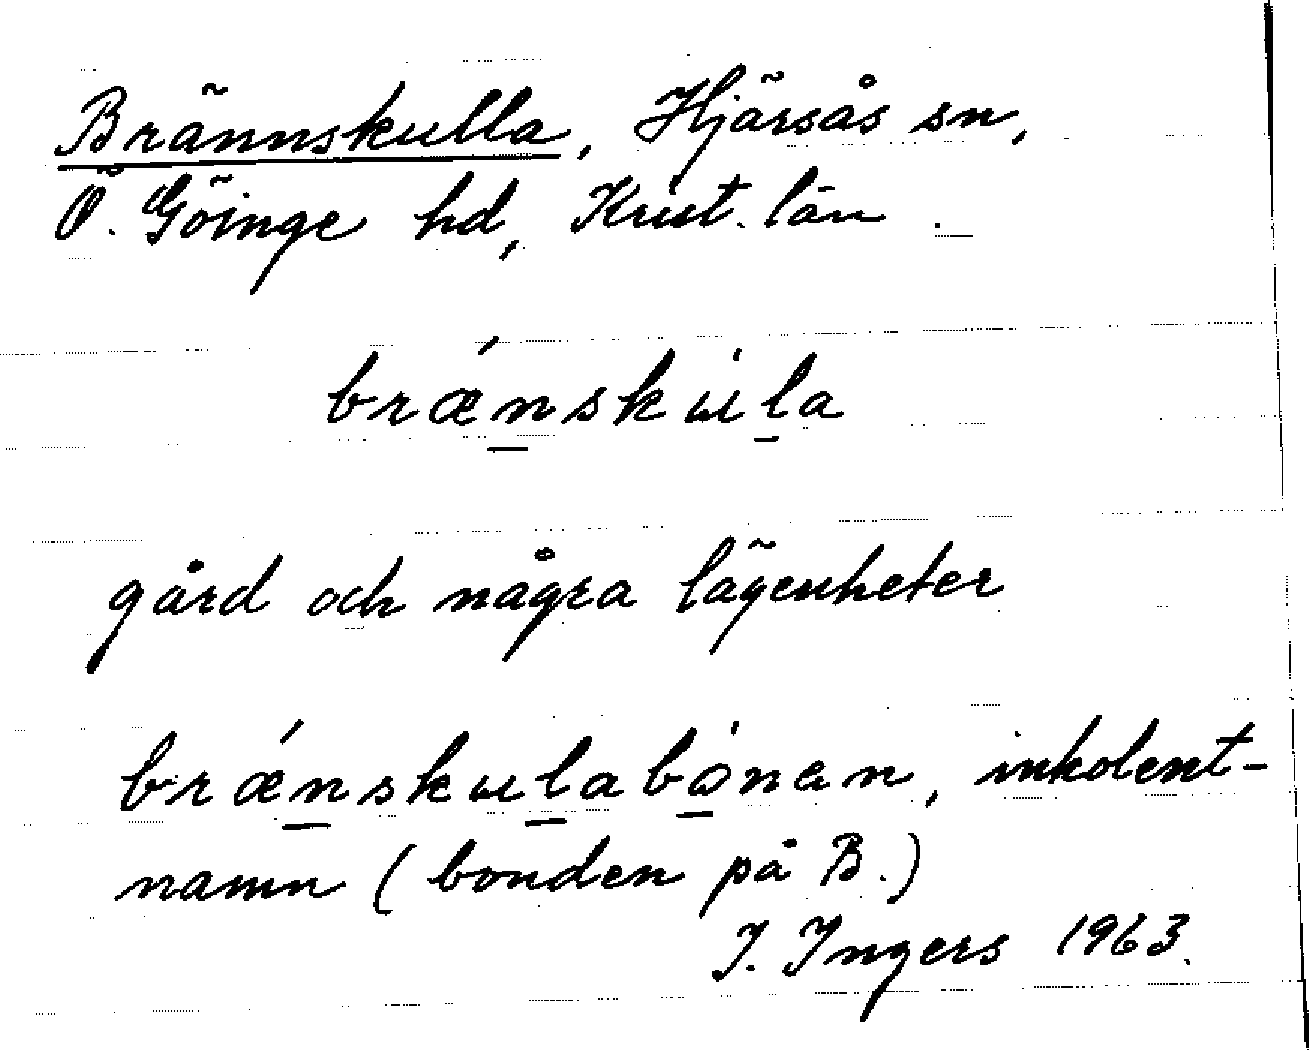 Brännskulla, Hjärsås sn,
Ö. Göinge hd, Krist. län.
brǽn̲skúl̲a
gård och några lägenheter
brǽn̲skul̲abó̲nan, inkolent-
namn (bonden på B.)
I. Ingers 1963.